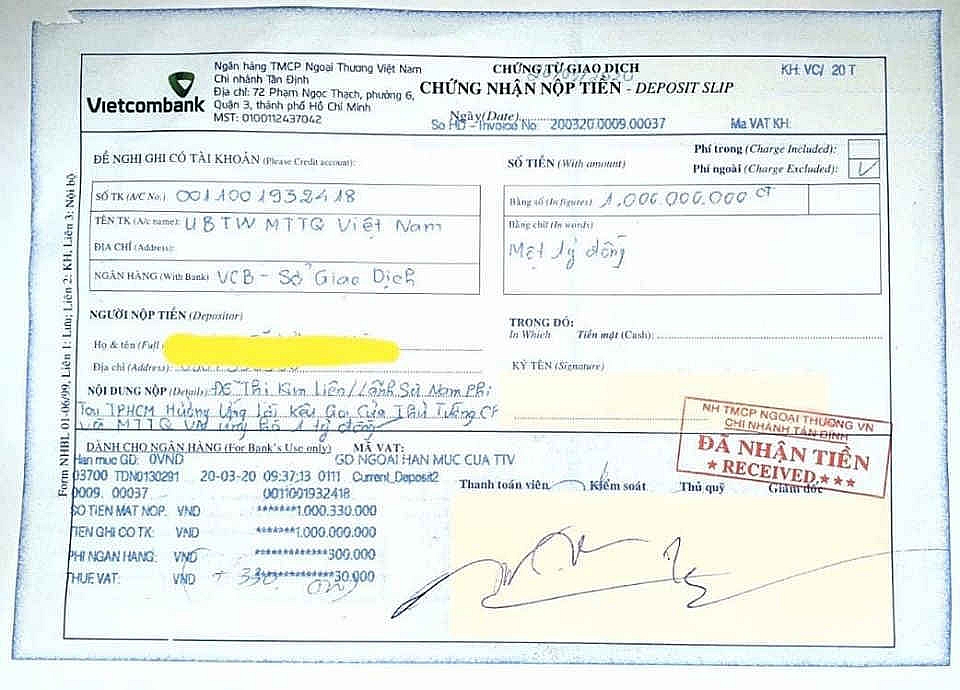 Vietcombank
Ngân hàng TMCP Ngoại Thương Việt Nam
Chi nhánh Tân Định
Địa chỉ: 72 Phạm Ngọc Thạch, phường 6,
Quận 3, thành phố Hồ Chí Minh
MST: 0100112437042
CHỨNG TỪ GIAO DỊCH
CHỨNG NHẬN NỘP TIỀN - DEPOSIT SLIP
Ngày (Date)
So HD - Invoice No: 200320.0009.00037
Ma VAT KH:
KH: VC/ 20 T
Phí trong (Charge Included):
Phí ngoài (Charge Excluded):
ĐỀ NGHỊ GHI CÓ TÀI KHOẢN (Please Credit account):
SỐ TK (A/C No.) 0011001932418
TÊN TK (A/c name): UBTW MTTQ Việt Nam
ĐỊA CHỈ (Address):
NGÂN HÀNG (With Bank) VCB - Sở Giao Dịch
SỐ TIỀN (With amount)
Bằng số (In figures) 1.000.000.000
Bằng chữ (In words)
Một tỷ đồng
NGƯỜI NỘP TIỀN (Depositor)
Họ & tên (Full
Địa chỉ (Address):
NỘI DUNG NỘP (Details): Đỗ Thị Kim Liên/Lãnh Sự Nam Phi
Tại TPHCM Hưởng Ứng Lời Kêu Gọi Của Thủ Tướng CP
và MTTQ VN ủng hộ 1 tỷ đồng
TRONG ĐÓ:
In Which Tiền mặt (Cash):
KÝ TÊN (Signature)
NH TMCP NGOẠI THƯƠNG VN
CHI NHÁNH TÂN ĐỊNH
ĐÃ NHẬN TIỀN
★ RECEIVED ★★★
DÀNH CHO NGÂN HÀNG (For Bank's Use only)
MÃ VAT:
Han muc GD: 0VND
GD NGOAI HAN MUC CUA TTV
03700 TDN0130291 20-03-20 09:37:13 0111 Current_Deposit2
0009. 00037 0011001932418
SO TIEN MAT NOP: VND *******1.000.330.000
TIEN GHI CO TK: VND *******1.000.000.000
PHI NGAN HANG: VND *************300.000
THUE VAT: VND **************30.000
Thanh toán viên
Kiểm soát
Thủ quỹ
Giám đốc
Form NHBL 01-06/99, Liên 1: Lưu; Liên 2: KH, Liên 3: Nội bộ